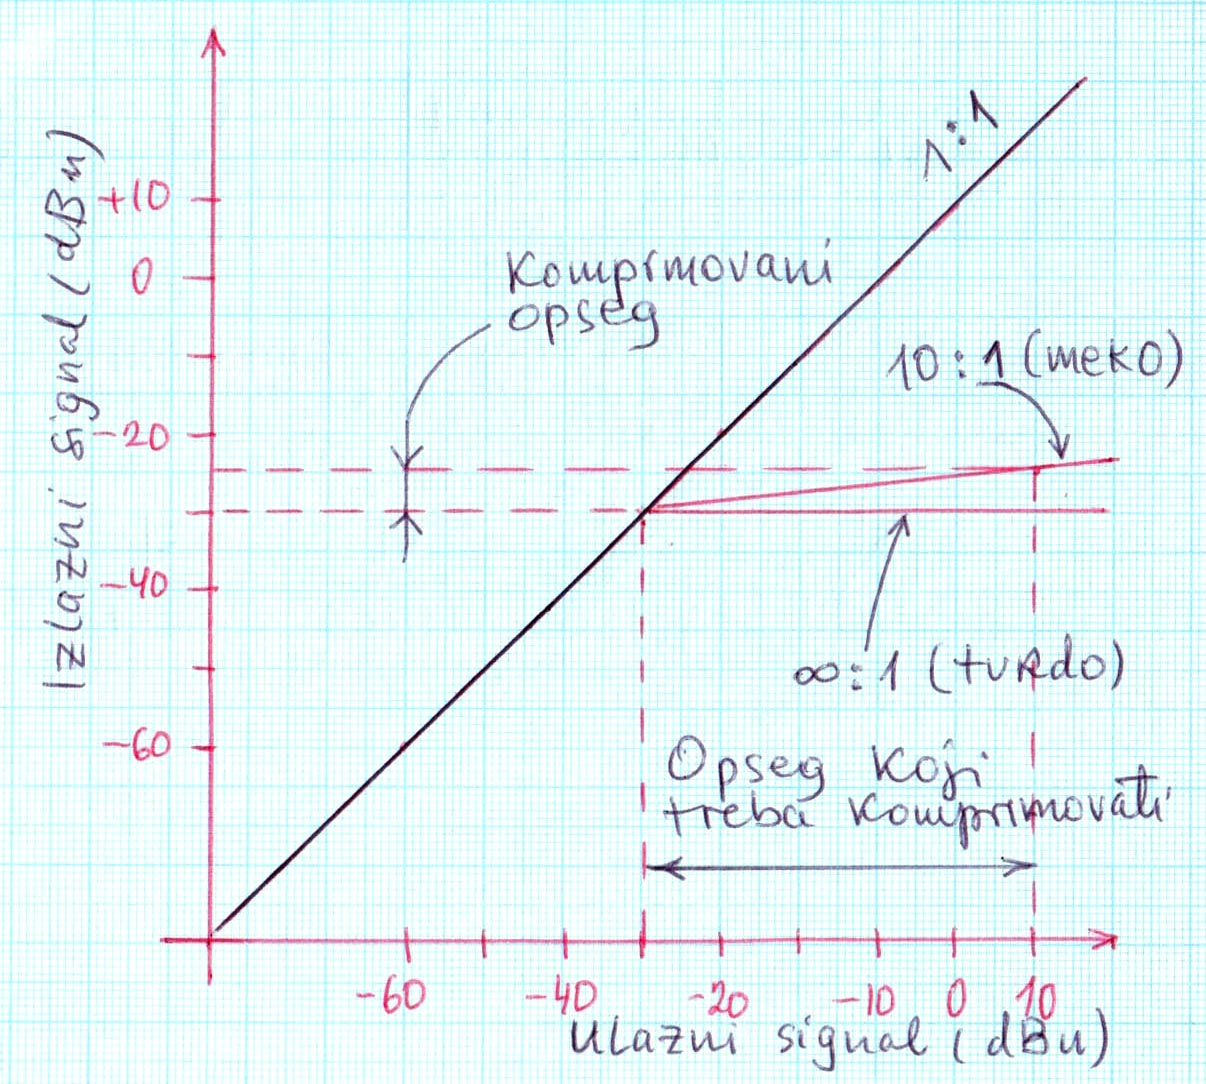 Izlazni signal (dBu)
+10
0
-20
-40
-60
1:1
Komprmovani
opseg
10:1 (meko)
∞:1 (tvRdo)
Opseg koji
treba komprimovati
-60
-40
-20
-10
0
10
Ulazni signal (dBu)